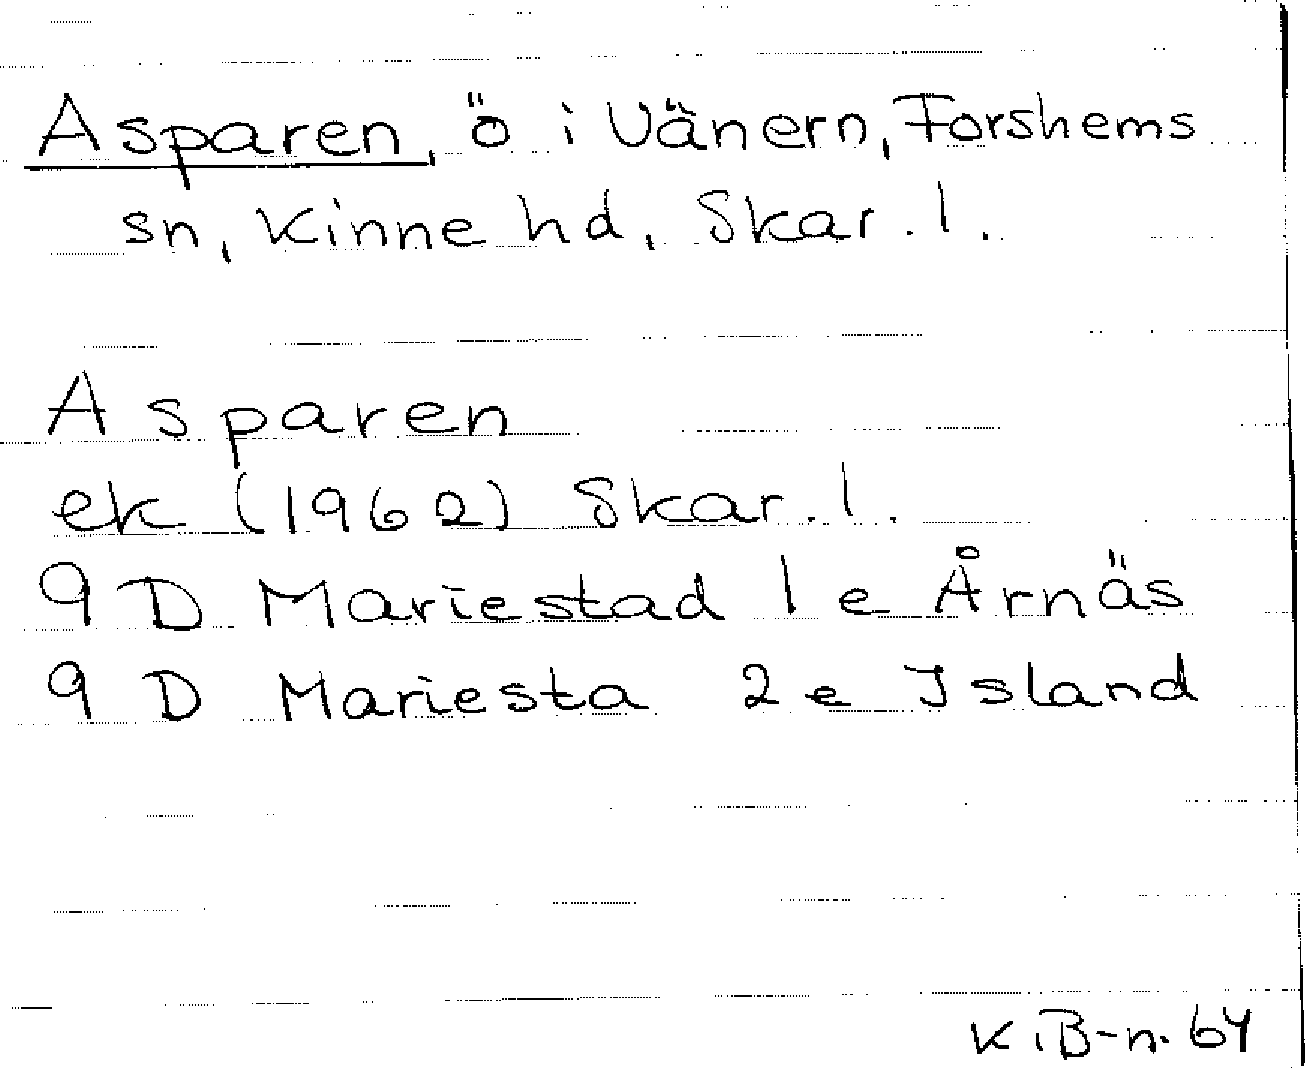 Asparen, ö i Vänern, Forshems
sn, Kinne hd, Skar. l.
Asparen
ek (1962) Skar. l.
9 D Mariestad 1 e Årnäs
9 D Mariesta 2 e Island
K.B-n. 64